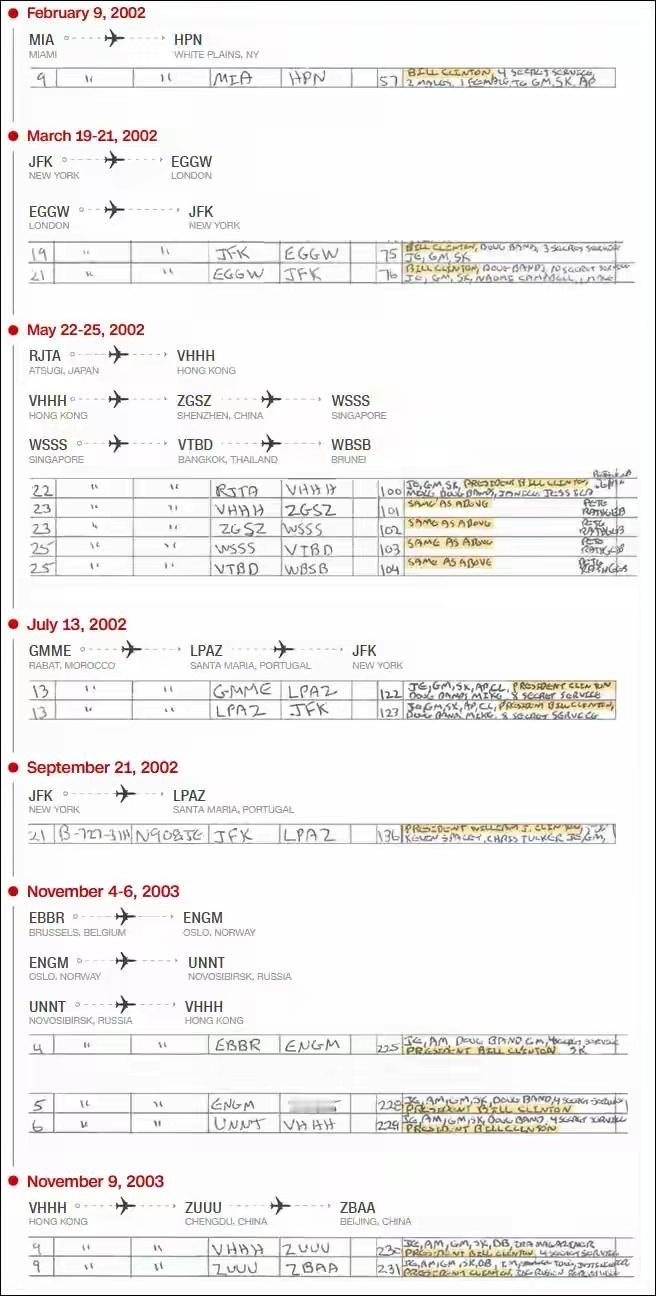 February 9, 2002
MIA HPN
MIAMI WHITE PLAINS, NY
9 " " MIA HPN 57 BILL CLINTON, 4 SECRET SERVICE,
2 MALES, 1 FEMALE, TG GM, SK, AP
March 19-21, 2002
JFK EGGW
NEW YORK LONDON
EGGW JFK
LONDON NEW YORK
19 " " JFK EGGW 75 BILL CLINTON, DOUG BAND, 3 SECRET SERVICE
JE, GM, SK
21 " " EGGW JFK 76 BILL CLINTON, DOUG BAND, 10 SECRET SERVICE
JE, GM, SK, NAOMI CAMPBELL, 1 MALE
May 22-25, 2002
RJTA VHHH
ATSUGI, JAPAN HONG KONG
VHHH ZGSZ WSSS
HONG KONG SHENZHEN, CHINA SINGAPORE
WSSS VTBD WBSB
SINGAPORE BANGKOK, THAILAND BRUNEI
22 " " RJTA VHHH 100 JE, GM, SK, PRESIDENT BILL CLINTON
MIKE, DOUG BAND, JANICE, JESSICA
23 " " VHHH ZGSZ 101 SAME AS ABOVE PETE
23 " " ZGSZ WSSS 102 SAME AS ABOVE PETE
25 " " WSSS VTBD 103 SAME AS ABOVE PETE
25 " " VTBD WBSB 104 SAME AS ABOVE PETE
July 13, 2002
GMME LPAZ JFK
RABAT, MOROCCO SANTA MARIA, PORTUGAL NEW YORK
13 " " GMME LPAZ 122 JE, GM, SK, AP, CL, PRESIDENT CLINTON
DOUG BAND, MIKE, 8 SECRET SERVICE
13 " " LPAZ JFK 123 JE, GM, SK, AP, CL, PRESIDENT BILL CLINTON,
DOUG BAND, MIKE, 8 SECRET SERVICE
September 21, 2002
JFK LPAZ
NEW YORK SANTA MARIA, PORTUGAL
21 B-727-31H N908JE JFK LPAZ 136 PRESIDENT WILLIAM J. CLINTON,
KEVEN SPACEY, CHRIS TUCKER JE, GM,
November 4-6, 2003
EBBR ENGM
BRUSSELS, BELGIUM OSLO, NORWAY
ENGM UNNT
OSLO, NORWAY NOVOSIBIRSK, RUSSIA
UNNT VHHH
NOVOSIBIRSK, RUSSIA HONG KONG
4 " " EBBR ENGM 225 JE, AM, DOUG BAND, GM, 4 SECRET SERVICE
PRESIDENT BILL CLINTON SK
5 " " ENGM 228 JE, AM, GM, SK, DOUG BAND, 4 SECRET SERVICE
PRESIDENT BILL CLINTON
6 " " UNNT VHHH 229 JE, AM, GM, SK, DOUG BAND, 4 SECRET SERVICE
PRESIDENT BILL CLINTON
November 9, 2003
VHHH ZUUU ZBAA
HONG KONG CHENGDU, CHINA BEIJING, CHINA
9 " " VHHH ZUUU 230 JE, AM, GM, SK, DB, IRA MAGAZINER
PRESIDENT BILL CLINTON, 4 SECRET SERVICE
9 " " ZUUU ZBAA 231 JE, AM, GM, SK, DB, IM,
PRESIDENT CLINTON,